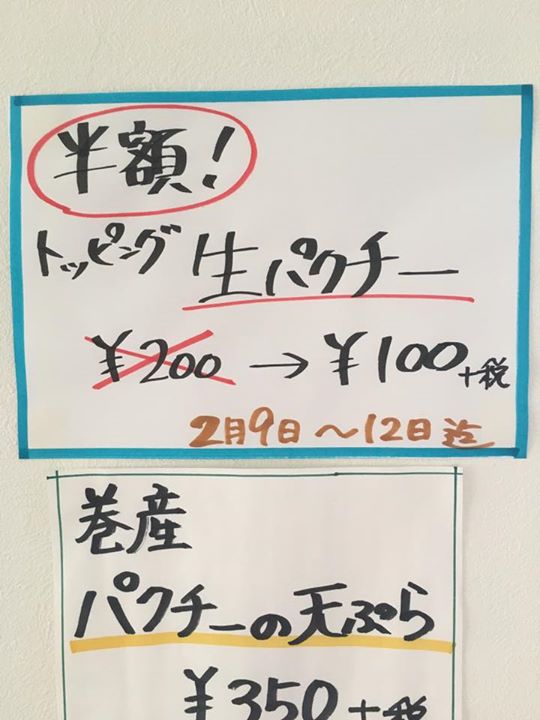 半額!
トッピング 生パクチー
¥200 → ¥100+税
2月9日~12日迄
巻産
パクチーの天ぷら
¥350+税